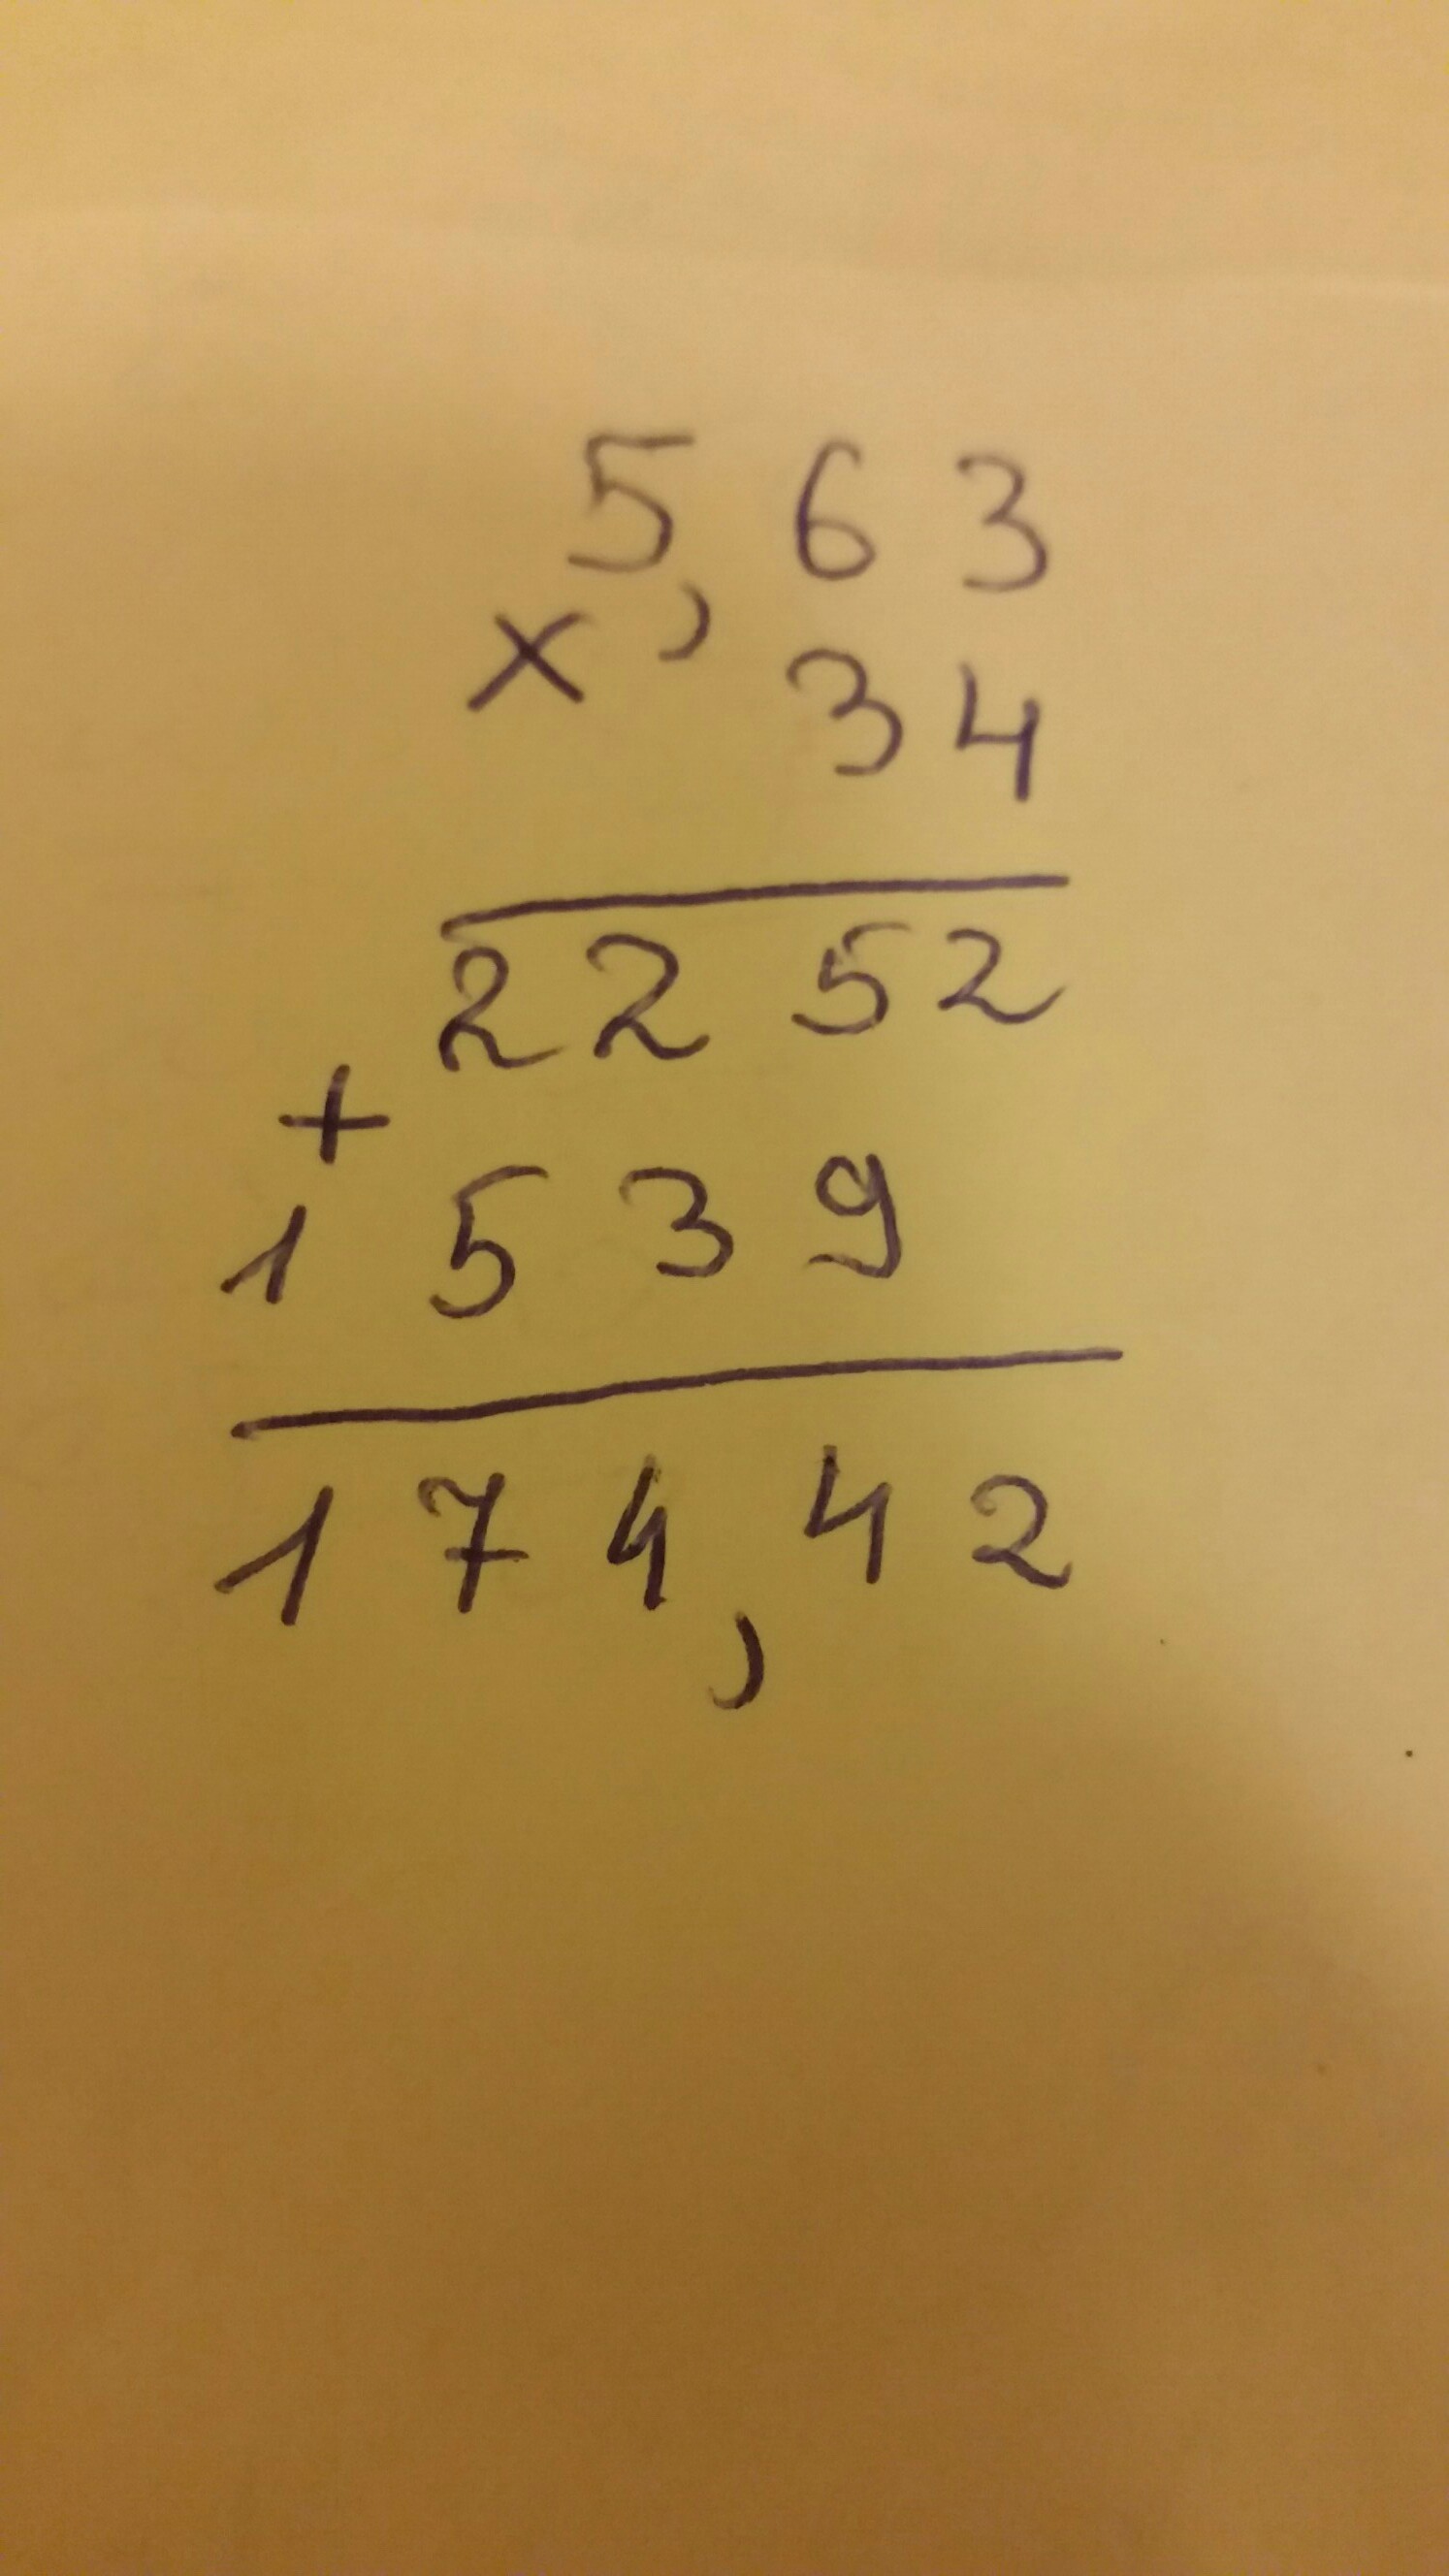 5,63
× 34
2252
+
1539
174,42